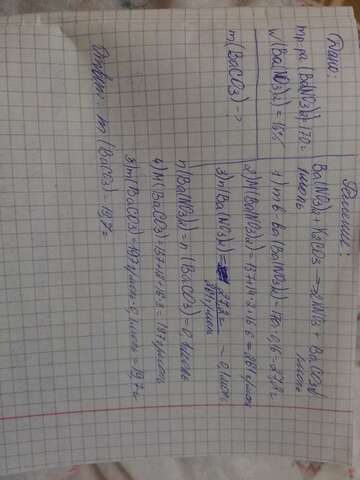 Дано:
mр-ра (Ba(NO3)2)=170г
W(Ba(NO3)2) = 16%
m(BaCO3) - ?
Решение:
Ba(NO3)2 + K2CO3 → 2KNO3 + BaCO3↓
1моль 1моль
1) mв-ва(Ba(NO3)2)=170·0,16=27,2г
2) M(Ba(NO3)2)=137+14·2+16·6=261г/моль
3) n(Ba(NO3)2)= 27,2г / 261г/моль ~ 0,1моль
n(Ba(NO3)2) = n(BaCO3)=0,1моль
4) M(BaCO3)=137+12+16·3=197г/моль
5) m(BaCO3)=197г/моль·0,1моль=19,7г
Ответ: m(BaCO3)=19,7г